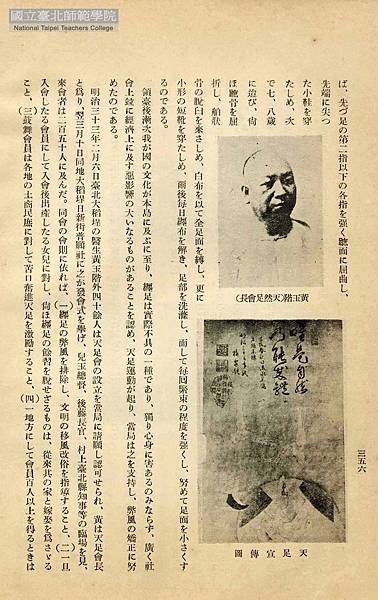 國立臺北師範學院
National Taipei Teachers College
ば、先づ足の第二指以下の各指を强く蹠面に屈曲し、
先端に尖つ
た小鞋を穿
たしめ、次
で七、八歲
に迨び、尙
ほ蹠骨を屈
折し、舶狀
骨の脫臼を來さしめ、白布を以て全足面を縛し、更に
小形の短靴を穿たしめ、爾後每日纒布を解き、足部を洗滌し、而して每回緊束の程度を强くし、努めて足面を小さくす
るのである。
領臺後漸次我が國の文化が本島に及ぶに至り、纒足は實際不具の一種であり、獨り心身に害あるのみならず、廣く社
會上竝に經濟上に及す惡影響の大いなるものがあることを認め、天足運動が起り、當局は之を支持し、弊風の矯正に努
めたのである。
明治三十三年二月六日臺北大稻埕の醫生黃玉階外四十餘人は天足會の設立を當局に請願し認可せられ、黃は天足會長
と爲り、翌三月十日同地大稻埕日新街普願社に之が發會式を擧げ、兒玉總督、後藤長官、村上臺北縣知事等の臨場を見、
來會者は二百五十人に及んだ。同會の會則に依れば、(一)纒足の弊風を排除し、文明の移風改俗を指導すること、(二)一旦
入會したる會員にして入會後出產したる女兒に對し、尙ほ纒足の餘習を脫せざるものは、從來其の家と嫁娶を爲さざる
こと、(三)鼓舞會員は各地の士商民庶に對して苦口奮進天足を激勵すること、(四)一地方にして會員百人以上を得るときは
黃玉階(天然足會長)
天足宣傳圖
三五六